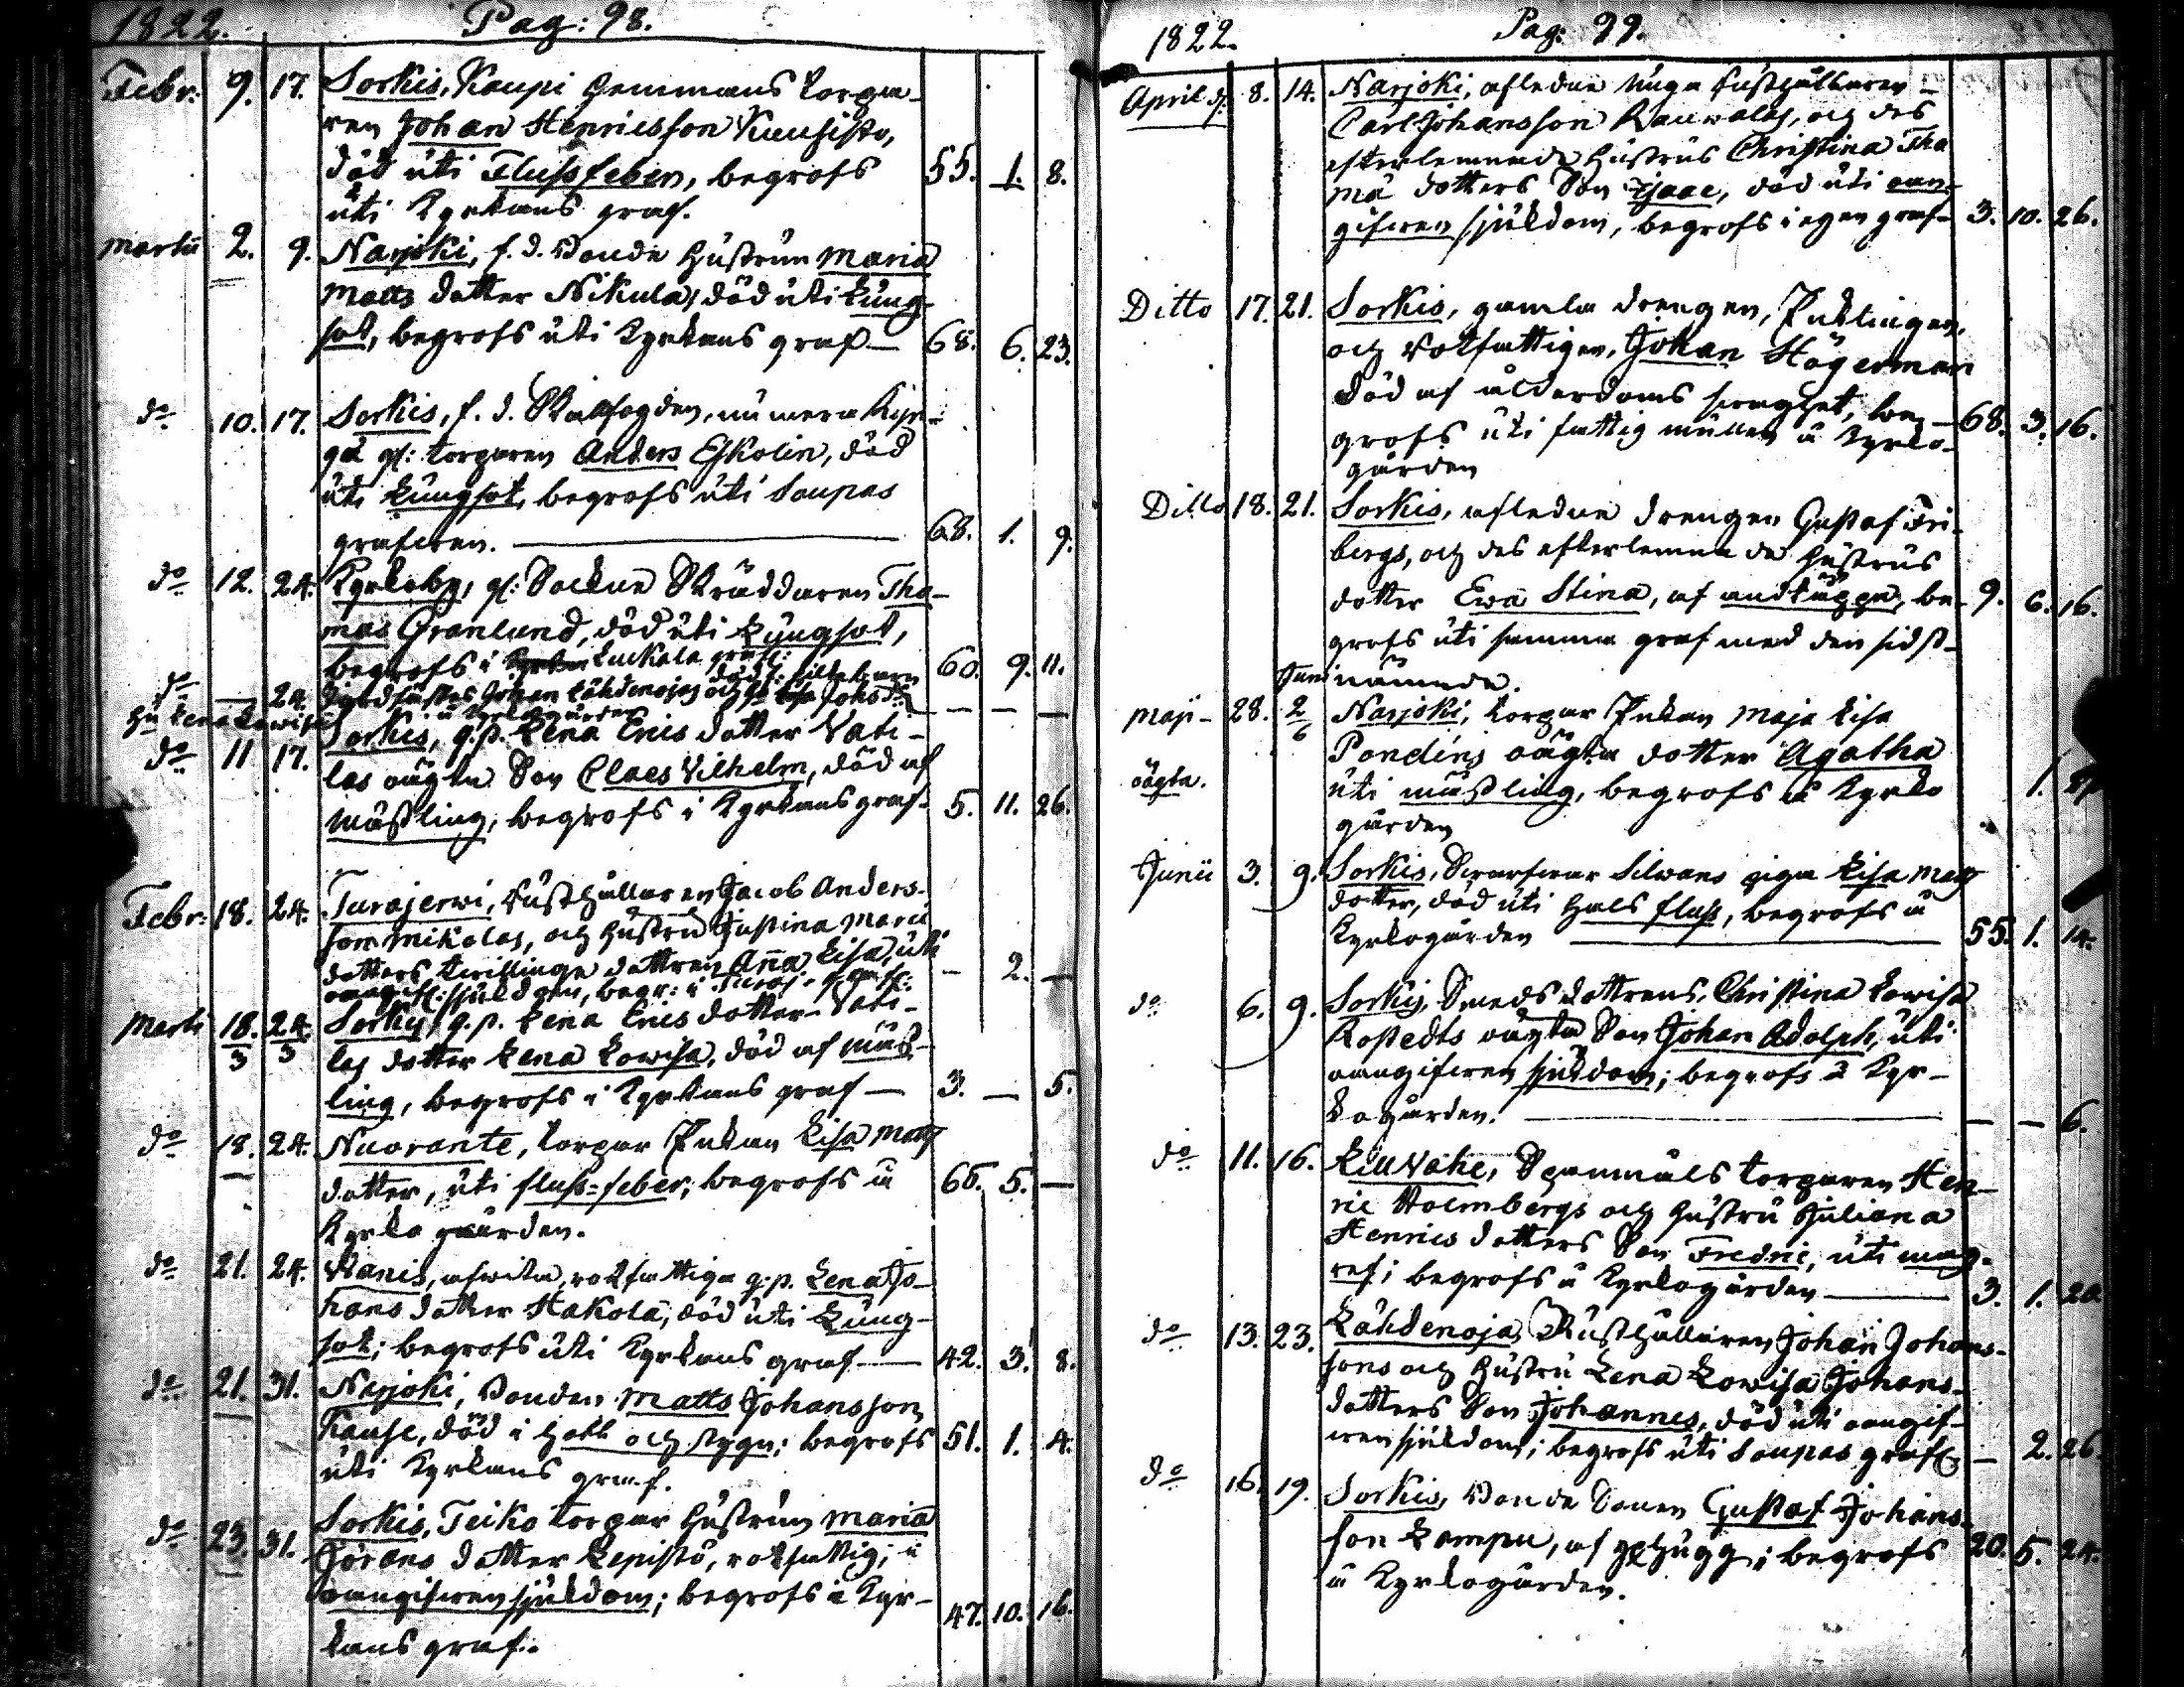 1822. Pag: 98.
Febr: 9. 17. Sorkis, Kaupi hemmans torpa-
ren Johan Henricsson Kuusisto,
död uti Flussfeber, begrofs 55. 1. 8.
uti Kyrkans graf.
Martii 2. 9. Narjoki, f. d. Bonde Hustrun Maria
Matts dotter Nikula, död uti Lung-
sot, begrofs uti Kyrkans graf — 68. 6. 23.
do 10. 17. Sorkis, f. d. numera
torparen Anders Eskolin, död
uti Lungsot, begrofs uti Saupas
grafven. — 68. 1. 9.
do 12. 24. Kyrkoby, gl: Sockne Skräddaren Tho-
mas Granlund, död uti Lungsot,
begrofs i Luckala graf: 60. 9. 11.
do — 24. Johan Lähdenojas och Johsdr — — —
å Kyrkogården
Sorkis, q.p. Lena Erics dotter Vati-
do 11 17. las oägta Son Claes Vilhelm, död af
mässling, begrofs i Kyrkans graf. 5. 11. 26.
Febr: 18. 24. Turajerwi, Rusthållaren Jacob Anders-
son Mikolas, och Hustru Justina Maria
dotters tvillinge dottren Anna Lisa, uti — 2. —
oangifl: sjukdom, begr: i
Marti 18/3 24/3 Sorkis, q.p. Lena Erics dotter Vati-
las dotter Lena Lowisa, död af mäs-
ling, begrofs i Kyrkans graf — 3. — 5.
do 18. 24. Nuorante, torpar Enkan Lisa Matts
dotter, uti fluss-feber, begrofs å 66. 5. —
Kyrko gården.
do 21. 24. Wanis, rotfattiga q.p. Lena Jo-
hans dotter Hakola, död uti Lung-
sot; begrofs uti Kyrkans graf — 42. 3. 8.
do 21. 31. Narjoki, Bonden Matts Johansson
Kause, död i Håll och stygn; begrofs 51. 1. 4.
uti Kyrkans graf.
do 23. 31. Sorkis, Teiko torpar Hustrun Maria
Görans dotter Lepistö, rotfattig; i
oangifven sjukdom; begrofs i Kyr- 47. 10. 16.
kans graf.
1822. Pag: 99.
April d. 8. 14. Narjoki, afledne unga Rusthållaren
Carl Johansson Rauvalas, och des
efterlemnade Hustrus Christina Tho
mä dotters Son Isaac, död uti oan-
gifven sjukdom, begrofs i egen graf — 3. 10. 26.
Ditto 17. 21. Sorkis, gamla drengen, Enklingen,
och rotfattigen, Johan Högerman
död af ålderdoms be- 68. 3. 16.
grofs uti fattig mullen å Kyrko-
gården
Ditto 18. 21. Sorkis, afledne drengen Gustaf Fri-
bergs, och des efterlemnade Hustrus
dotter Ewa Stina, af andtäppa, be- 9. 6. 16.
grofs uti samma graf med den sidst-
Juni nämnde.
Maji — 28. 2/6 Narjoki, torpar Enkan Maja Lisa
Pondens oägta dotter Agatha
oägta. uti mässling, begrofs å Kyrko 1.
gården
Junii 3. 9. Sorkis, Silwans piga Lisa Matts
dotter, död uti Hals fluss, begrofs å
Kyrkogården — 55. 1. 14.
do 6. 9. Sorkis, Smeds dottrens, Christina Lowisa
Rostedts oägta Son Johan Adolph, uti
oangifven sjukdom; begrofs å Kyr-
ko gården. — — — 6.
do 11. 16. Liuvahe, torparen Hen-
ric Holmbergs och Hustru Juliana
Henrics dotters Son Fredric, uti mag-
ref; begrofs å Kyrkogården — 3. 1. 20
do 13. 23. Lähdenoja, Rusthållaren Johan Johans-
sons och Hustru Lena Lowisa Johans-
dotters Son Johannes, död uti oangif-
ven sjukdom; begrofs uti Saupas graf — 2. 26.
do 16. 19. Sorkis, Bonde Sonen Gustaf Johans-
son Kampu, af begrofs 20. 5. 24.
å Kyrkogården.